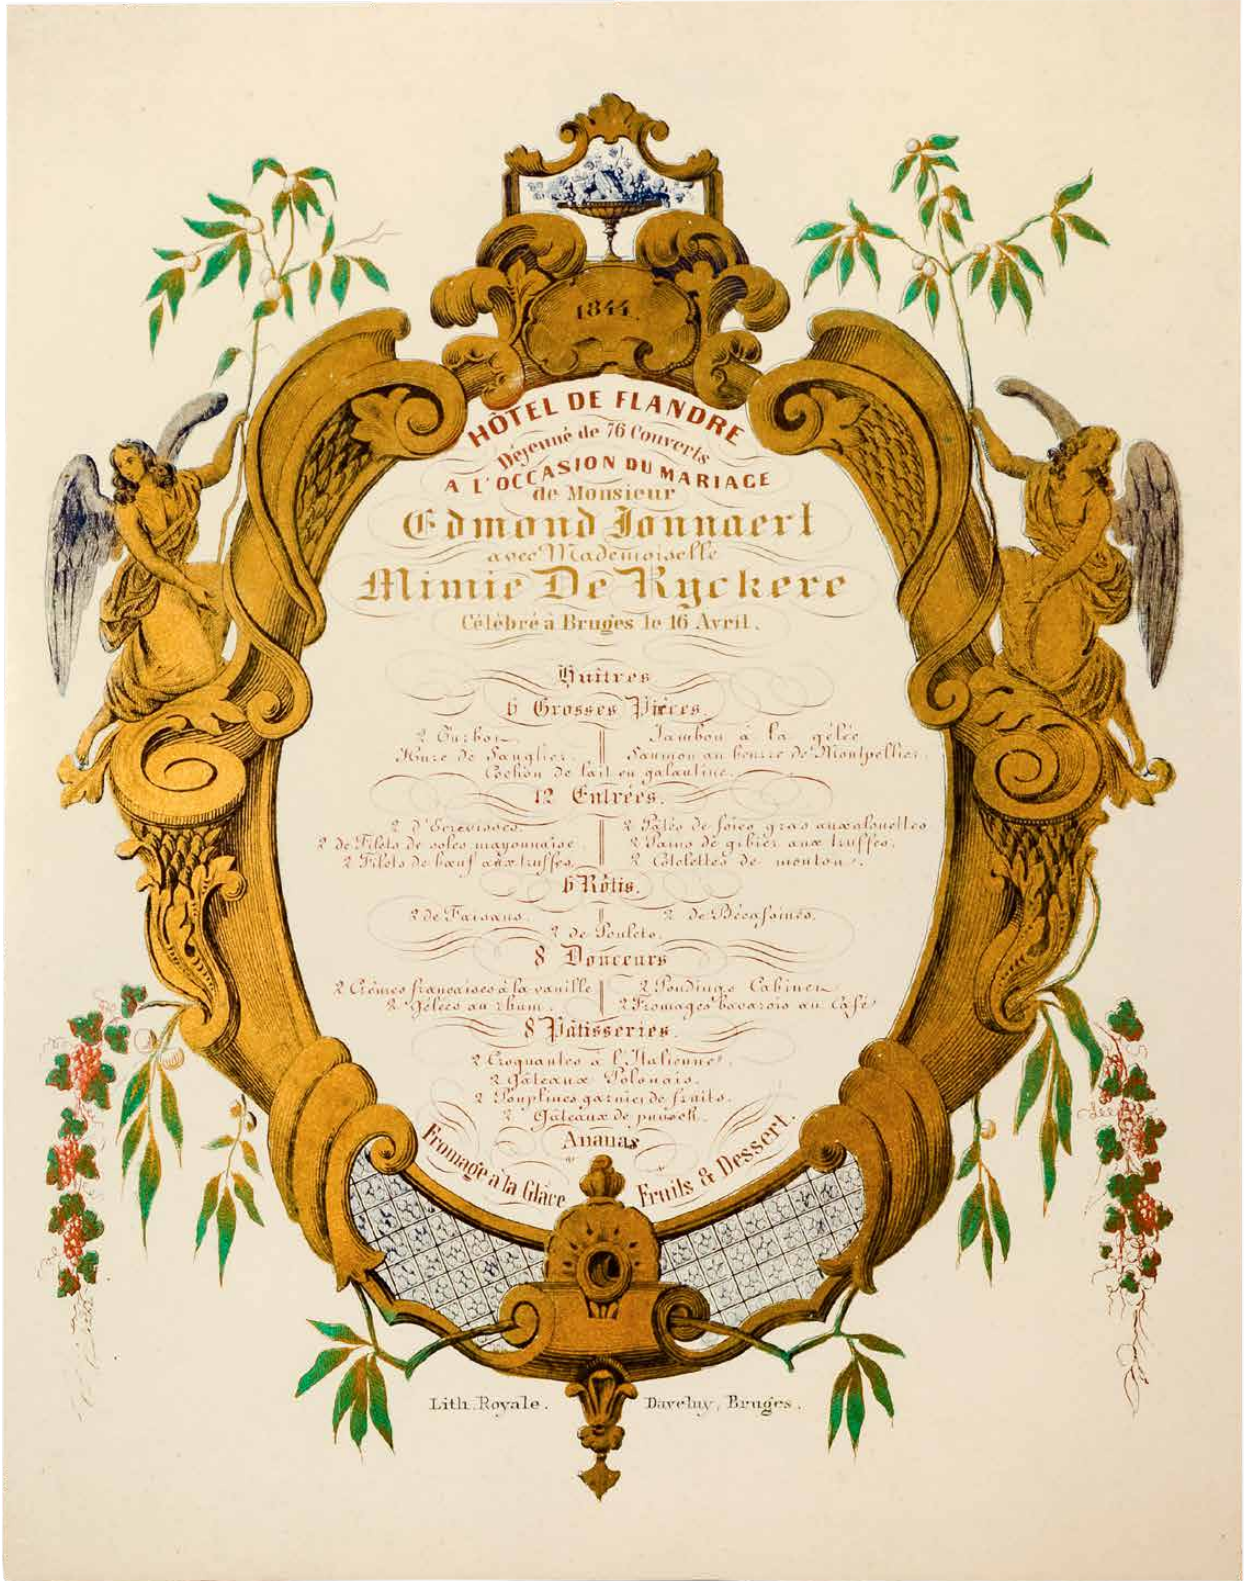 1844.
HÔTEL DE FLANDRE
Déjeuné de 76 Couverts
A L'OCCASION DU MARIAGE
de Monsieur
Edmond Jonnaert
avec Mademoiselle
Mimie De Ryckere
Célèbré à Bruges le 16 Avril.
Huîtres
6 Grosses Pièces.
2 Turbot Jambon à la gélée
Hure de Sanglier. Saumon au beurre de Montpellier.
Cochon de lait en galantine.
12 Entrées.
2 d'Ecrevisses. 2 Pâtés de foies gras aux alouettes
2 de Filets de soles mayonnaise. 2 Pains de gibier aux truffes.
2 Filets de bœuf aux truffes. 2 Cotelettes de mouton.
6 Rôtis.
2 de Faisans. 2 de Bécassines.
2 de Poulets.
8 Douceurs
2 Crêmes françaises à la vanille 2 Poudings Cabinet
2 Gélées au rhum. 2 Fromages bavarois au Café
8 Pâtisseries.
2 Croquantes à l'Italienne.
2 Gâteaux Polonais.
2 Pouplines garnies de fruits.
2 Gâteaux de punsch.
Ananas
Fromage à la Glâce Fruits & Dessert.
Lith. Royale. Daveluy, Bruges.